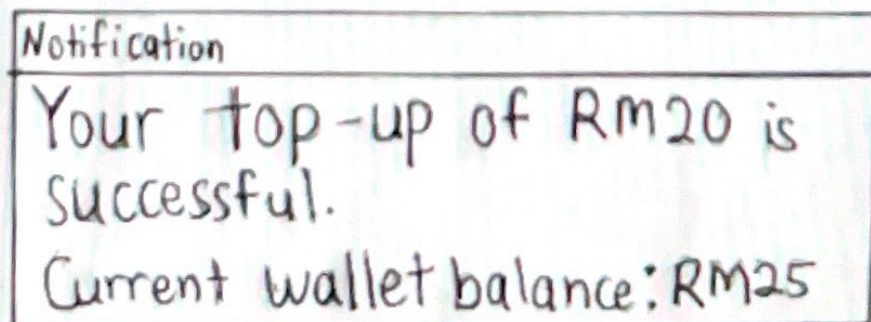 Notification
Your top-up of RM20 is
successful.
Current wallet balance: RM25